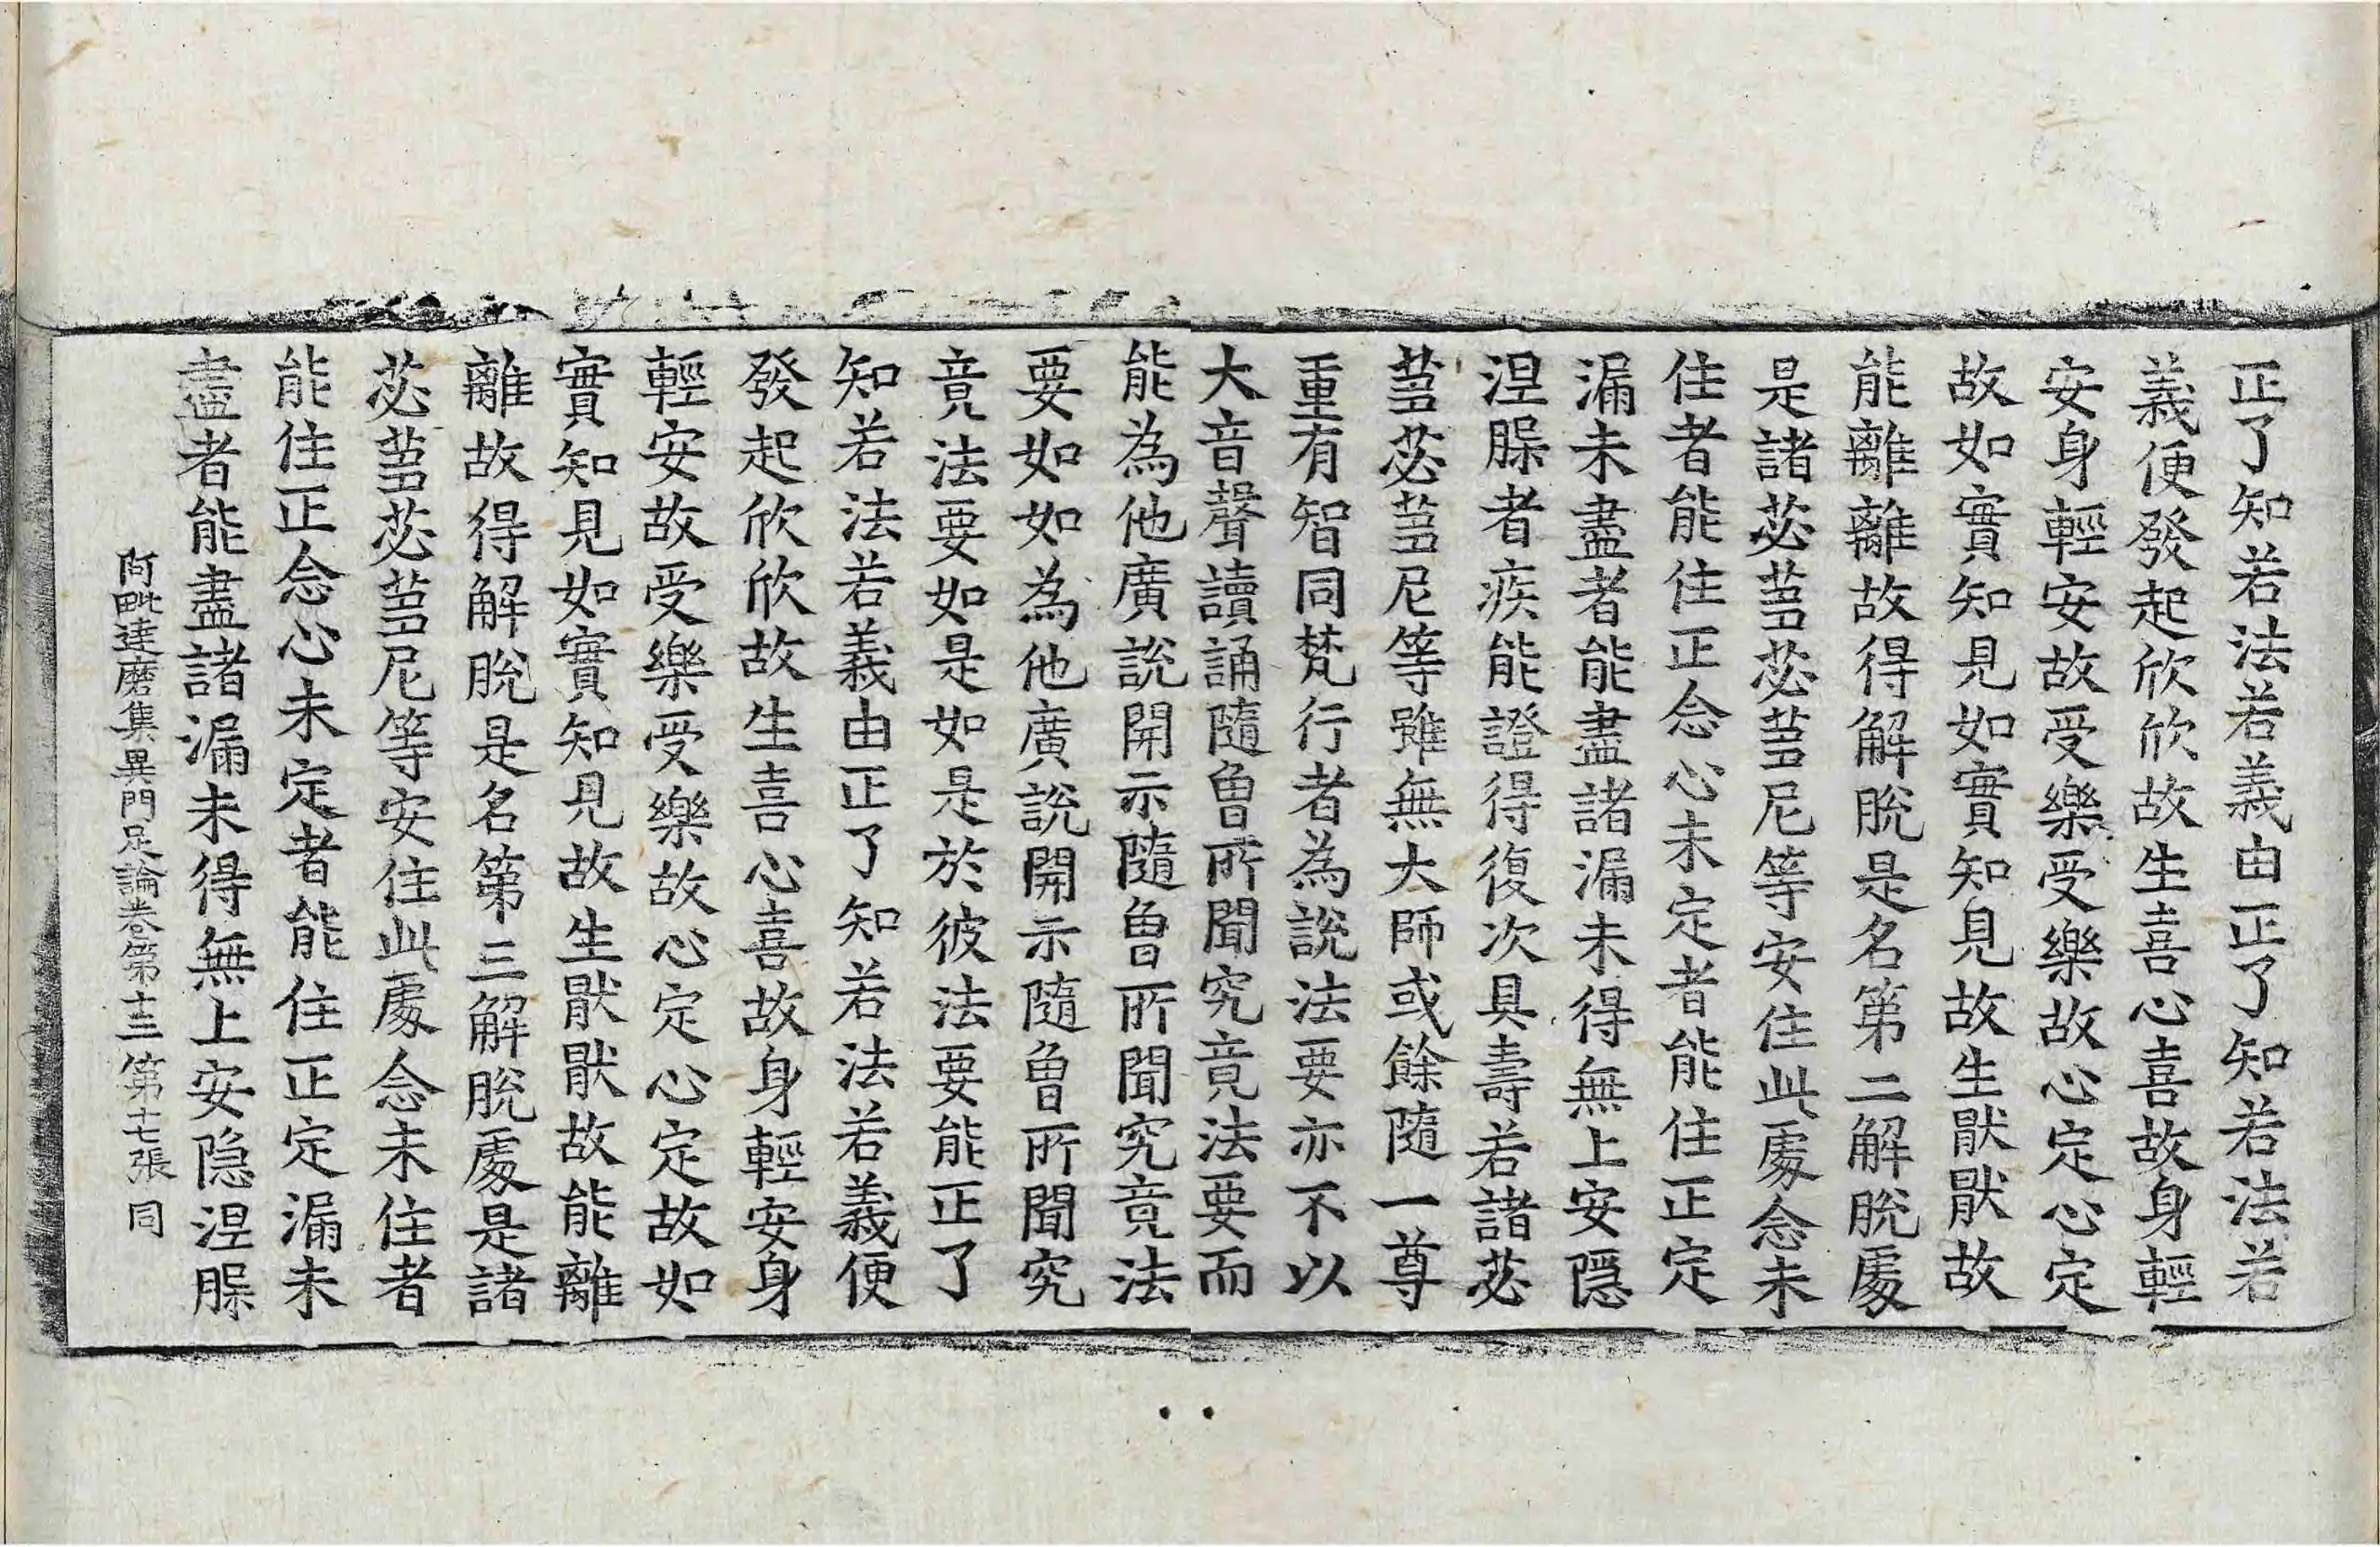 正了知若法若義由正了知若法若
義便發起欣欣故生喜心喜故身輕
安身輕安故受樂受樂故心定心定
故如實知見如實知見故生猒猒故
能離離故得解脫是名第二解脫處
是諸苾芻苾芻尼等安住此處念未
住者能住正念心未定者能住正定
漏未盡者能盡諸漏未得無上安隱
涅槃者疾能證得復次具壽若諸苾
芻苾芻尼等雖無大師或餘隨一尊
重有智同梵行者為說法要亦不以
大音聲讀誦隨曾所聞究竟法要而
能為他廣說開示隨曾所聞究竟法
要如如為他廣說開示隨曾所聞究
竟法要如是如是於彼法要能正了
知若法若義由正了知若法若義便
發起欣欣故生喜心喜故身輕安身
輕安故受樂受樂故心定心定故如
實知見如實知見故生猒猒故能離
離故得解脫是名第三解脫處是諸
苾芻苾芻尼等安住此處念未住者
能住正念心未定者能住正定漏未
盡者能盡諸漏未得無上安隱涅槃
阿毗達磨集異門足論卷第十三 第十七張 同